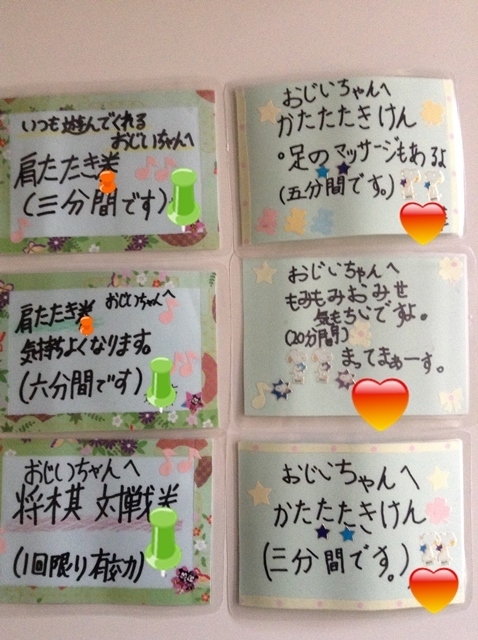 いつも遊んでくれる
おじいちゃんへ
肩たたき券
(三分間です)
おじいちゃんへ
かたたたきけん
。足のマッサージもあるよ
(五分間です。)
おじいちゃんへ
肩たたき券
気持ちよくなります。
(六分間です)
おじいちゃんへ
もみもみおみせ
気もちいですよ。
(20分間)
まってまぁーす。
おじいちゃんへ
将棋 対戦券
(1回限り有効)
おじいちゃんへ
かたたたきけん
(三分間です。)